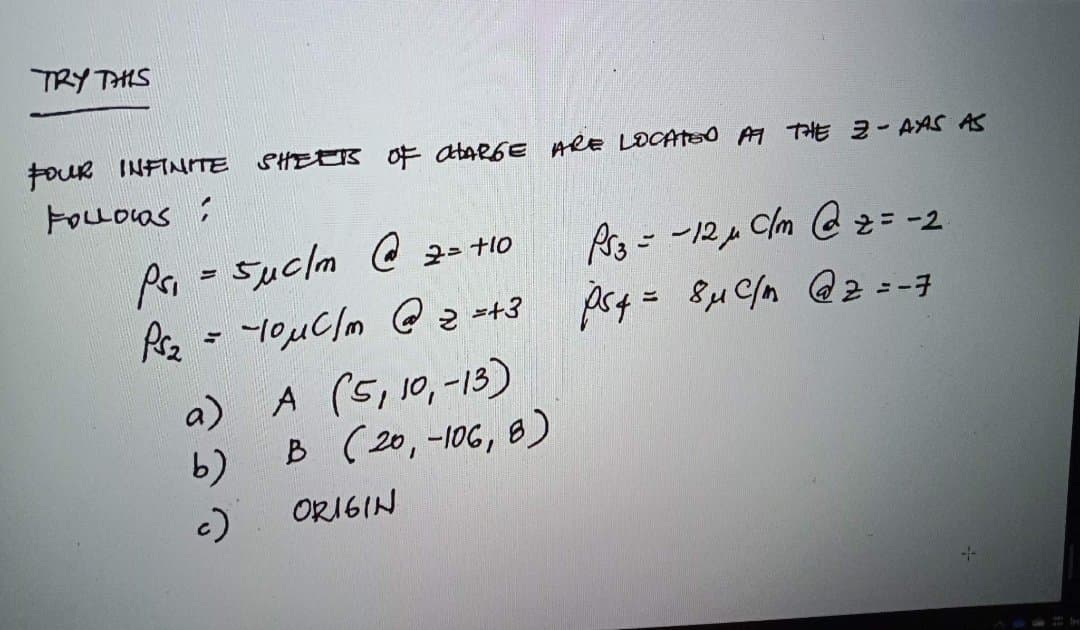 TRY THIS
FOUR INFINITE SHEETS OF CHARGE ARE LOCATED AT THE Z-AXIS AS
FOLLOWS :
ρs₁ = 5μC/m @ z=+10
ρs₃ = -12μC/m @ z=-2
ρs₂ = -10μC/m @ z=+3
ρs4 = 8μC/m @ z=-7
a) A (5, 10, -13)
b) B (20, -106, 8)
c) ORIGIN